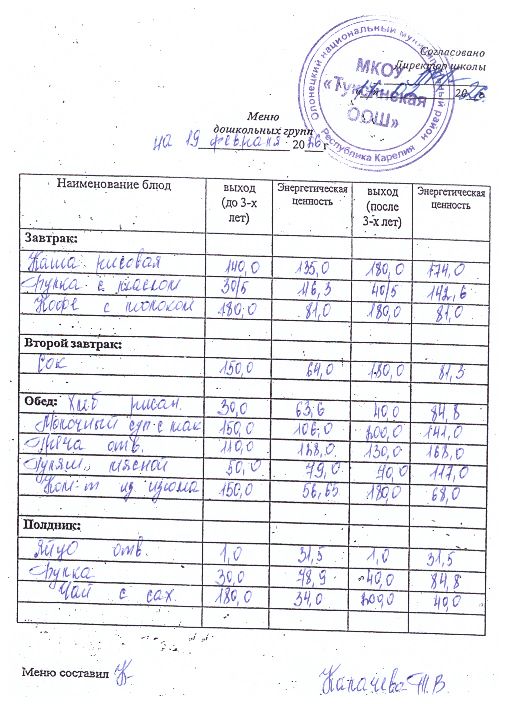 Согласовано
Директор школы
20 26
Олонецкий национальный муниципальный район
МКОУ
«Туксинская
ООШ»
Республика Карелия
Меню
дошкольных групп
на 19 февраля 2026 г
Наименование блюд выход (до 3-х лет) Энергетическая ценность выход (после 3-х лет) Энергетическая ценность
Завтрак:
Каша рисовая 140,0 135,0 180,0 174,0
Булка с маслом 30/5 116,3 40/5 142,6
Кофе с молоком 180,0 81,0 180,0 81,0
Второй завтрак:
Сок 150,0 64,0 180,0 81,5
Обед: Хлеб ржан. 30,0 63,6 40,0 84,8
Молочный суп с мак 150,0 106,0 200,0 141,0
отв. 110,0 130,0 168,0
Гуляш мясной 50,0 79,0 70,0 117,0
Ком-т из изюма 150,0 56,65 180,0 68,0
Полдник:
Яйцо отв. 1,0 31,5 1,0 31,5
Булка 30,0 78,9 40,0 84,8
Чай с сах. 180,0 34,0 200,0 40,0
Меню составил Капачева Т.В.